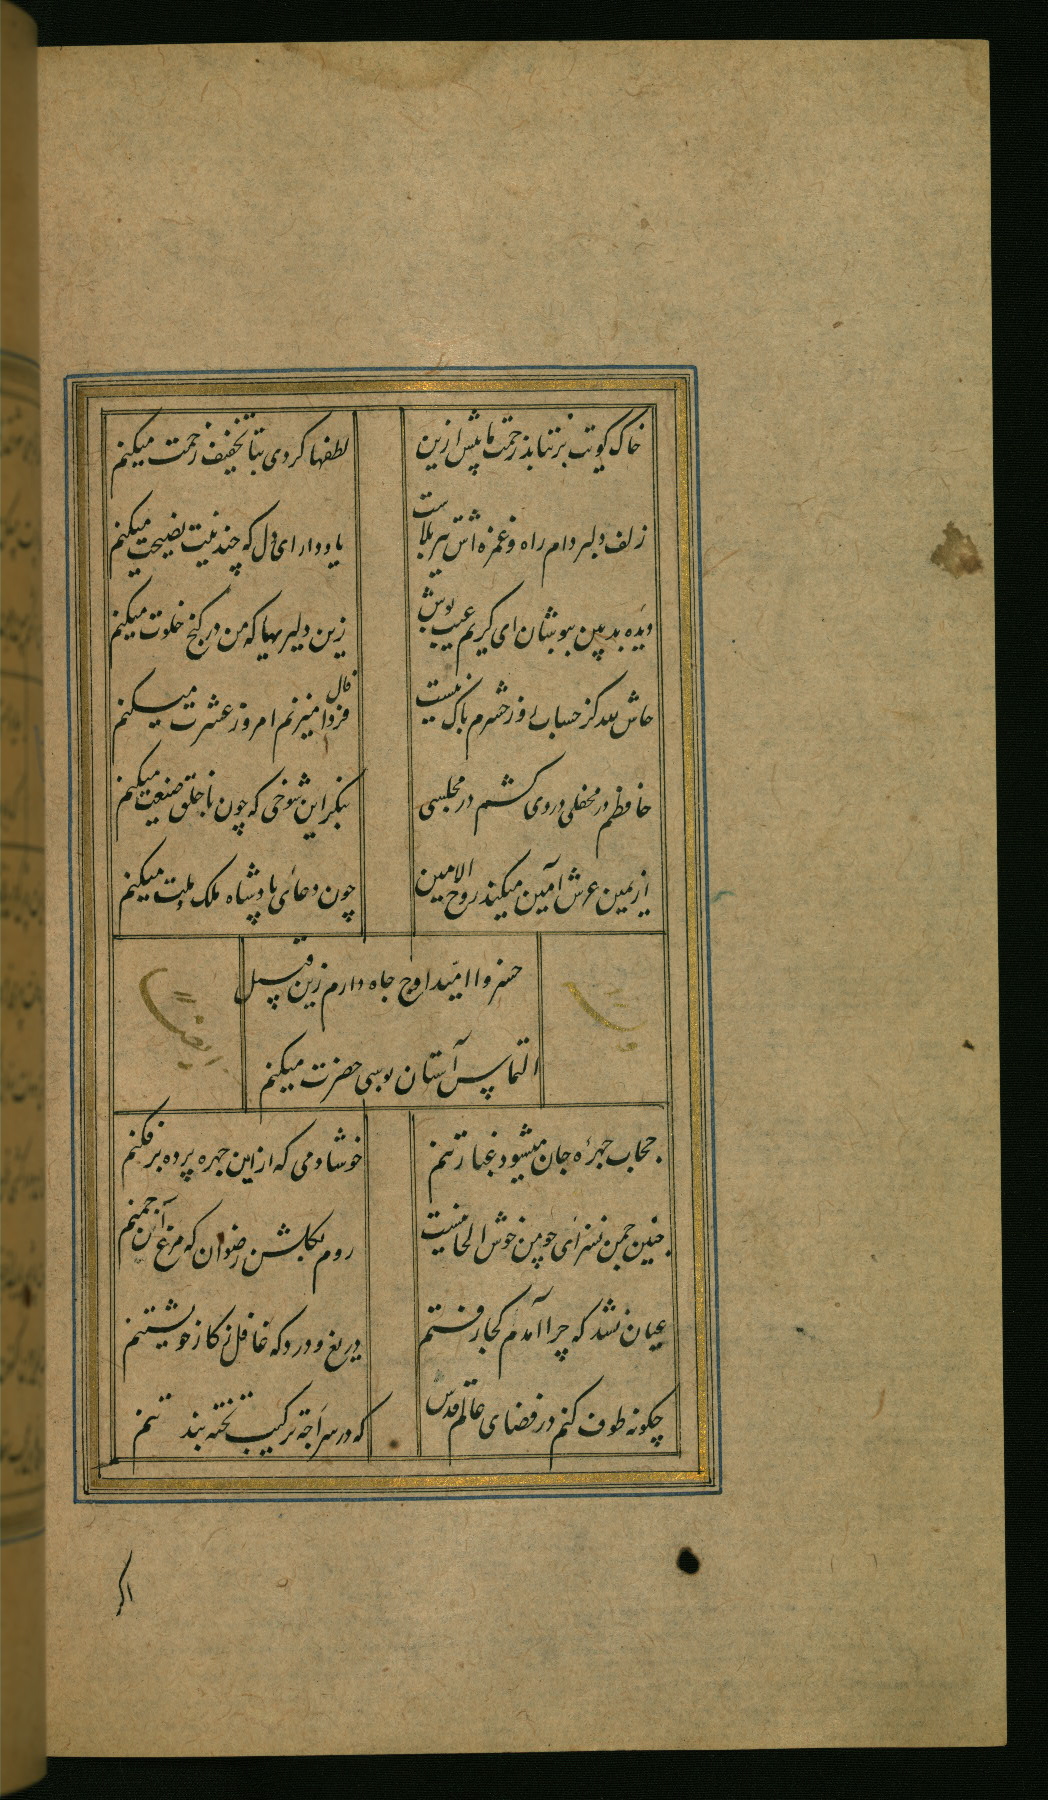 خاک کویت برنتابد زحمت ما پیش ازین
لطفها کردی بتا تخفیف زحمت میکنم
زلف دلبر دام راه و غمزه اش تیر بلاست
یاددار ای دل که چندینت نصیحت میکنم
دیده بدبین بپوشان ای کریم عیب پوش
زین دلیریها که من در کنج خلوت میکنم
حاش لله کز حساب روز حشرم باک نیست
فال فردا میزنم امروز عشرت میکنم
حافظم در محفلی دردی کشم در مجلسی
بنکر این شوخی که چون با خلق صنعت میکنم
از یمین عرش آمین میکند روح الامین
چون دعای پادشاه ملک ملت میکنم
خسروا امید اوج جاه دارم زین قبل
التماس آستان بوسی حضرت میکنم
حجاب چهرهٔ جان میشود غبار تنم
خوشا دمی که از این چهره پرده برفکنم
چنین چمن نه سزای چو من خوش الحانیست
روم بکلشن رضوان که مرغ آن چمنم
عیان نشد که چرا آمدم کجا رفتم
دریغ و درد که غافل ز کار خویشتنم
چکونه طوف کنم در فضای عالم قدس
که در سراچهٔ ترکیب تخته بند تنم
اکر